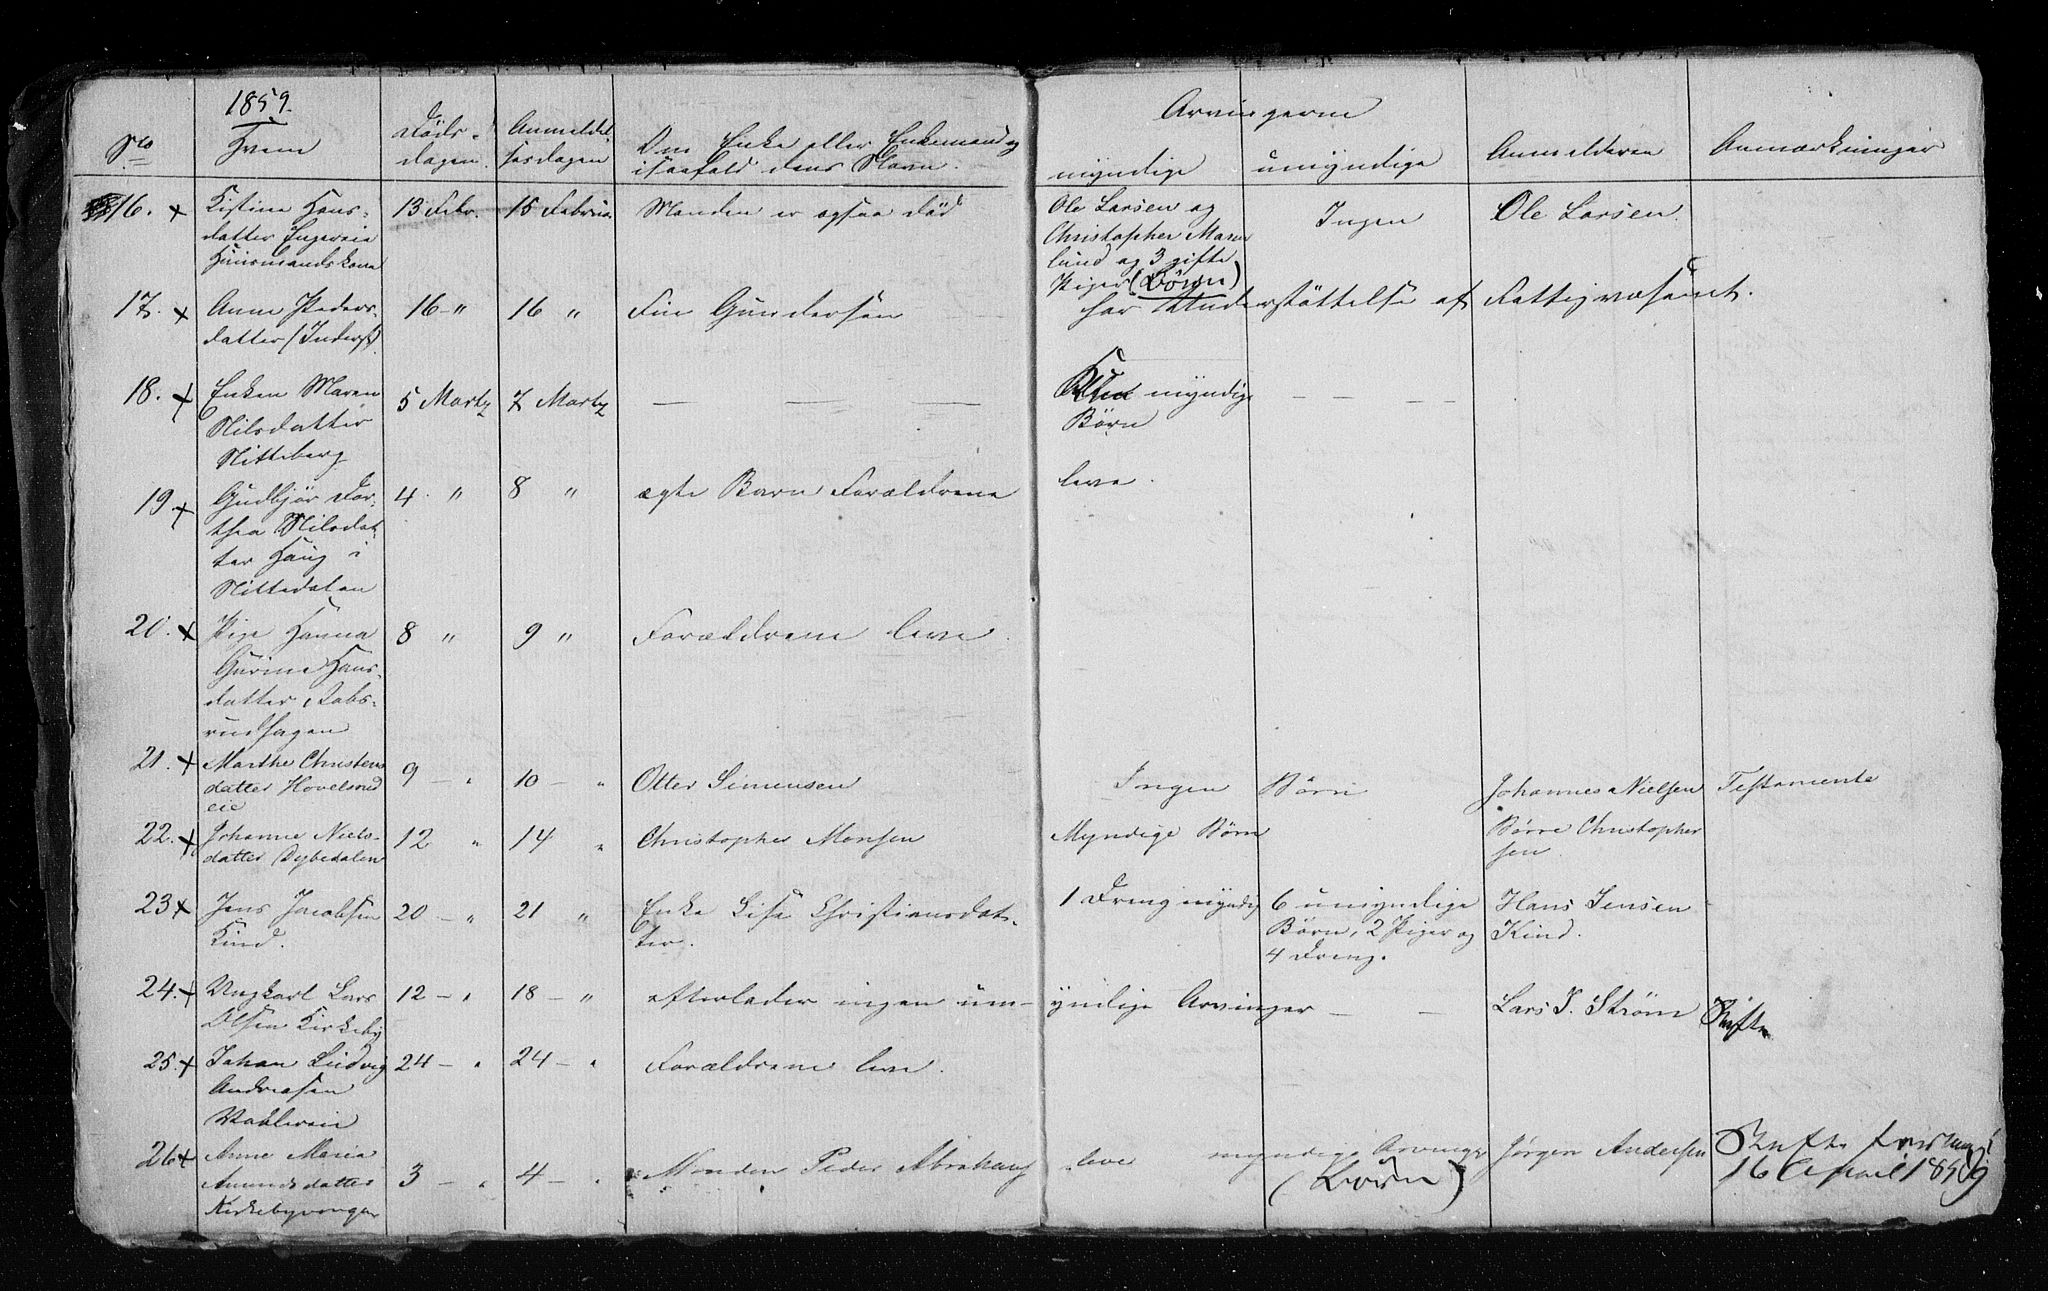 1859.
No
Hvem
Døds-
dagen.
Anmeldel-
sesdagen
Om Enke eller Enkemand og
isaafald dens Navn.
Arvingerne
myndige
umyndige
Anmelderen
Anmærkninger
16. x Kistine Hans-
datter Engereie
Huusmandskone
13 Febr.
15 Februar
Manden er ogsaa død
Ole Larsen og
Christopher Maren
lund og 3 gifte
Piger (Børn)
Ingen
Ole Larsen.
17. x Anne Peders-
datter (Inderst)
16 - "
16 "
Fin Gundersen
har Understøttelse af Fattigvæsenet.
18. x Enken Maren
Nilsdatter
Nitteberg
5 Marts
7 Marts
— — —
Kun myndige
Børn
— — — —
19 x Gudbjør Dor-
thea Nilsdat-
ter Haug i
Nittedalen
4. "
8 "
ægte Barn Forældrene
leve.
20. x Pige Hanna
Gurine Hans-
datter,
rudhagen
8 "
9 "
Forældrene leve.
21. x Marthe Christens
datter Hovelsrud
eie
9 — "
10 — "
Otter Simensen
Ingen Børn
Johannes Nielsen
Testamente
22. x Johanne Niels-
datter Dybedalen
12 "
14 "
Christopher Monsen
Myndige Børn
Børre Christopher
sen
23 x Jens Jacobsen
Kind.
20 — "
21 "
Enke Lisa Christiansdat-
ter.
1 Dreng myndig
6 umyndige
Børn, 2 Piger og
4 Dreng.
Hans Jensen
Kind.
24. x Ungkarl Lars
Olsen Kirkeby
12 — "
18 — "
efterlader ingen um-
yndige Arvinger — —
Lars J. Strøm
Skifte
25. x Johan Ludvig
Andreasen
24 — "
24 — "
Forældrene leve.
26 x Anne Maria
Amundsdatter
Kirkebyvangen
3 — "
4 — "
Manden Peder Abrahams
lever
myndige Arvinge
(Børn)
Jørgen Andersen
Skifte
16 April 1859